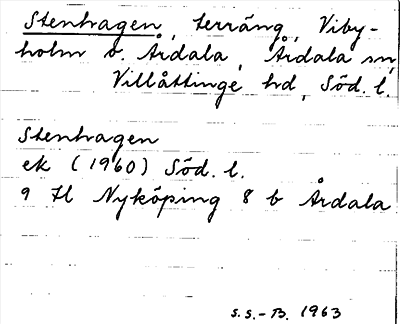 Stenhagen, terräng, Viby-
holm o. Årdala, Årdala sn,
Villåttinge hd, Söd. l.
Stenhagen
ek (1960) Söd. l.
9 H Nyköping 8 b Årdala
S.S.-B. 1963